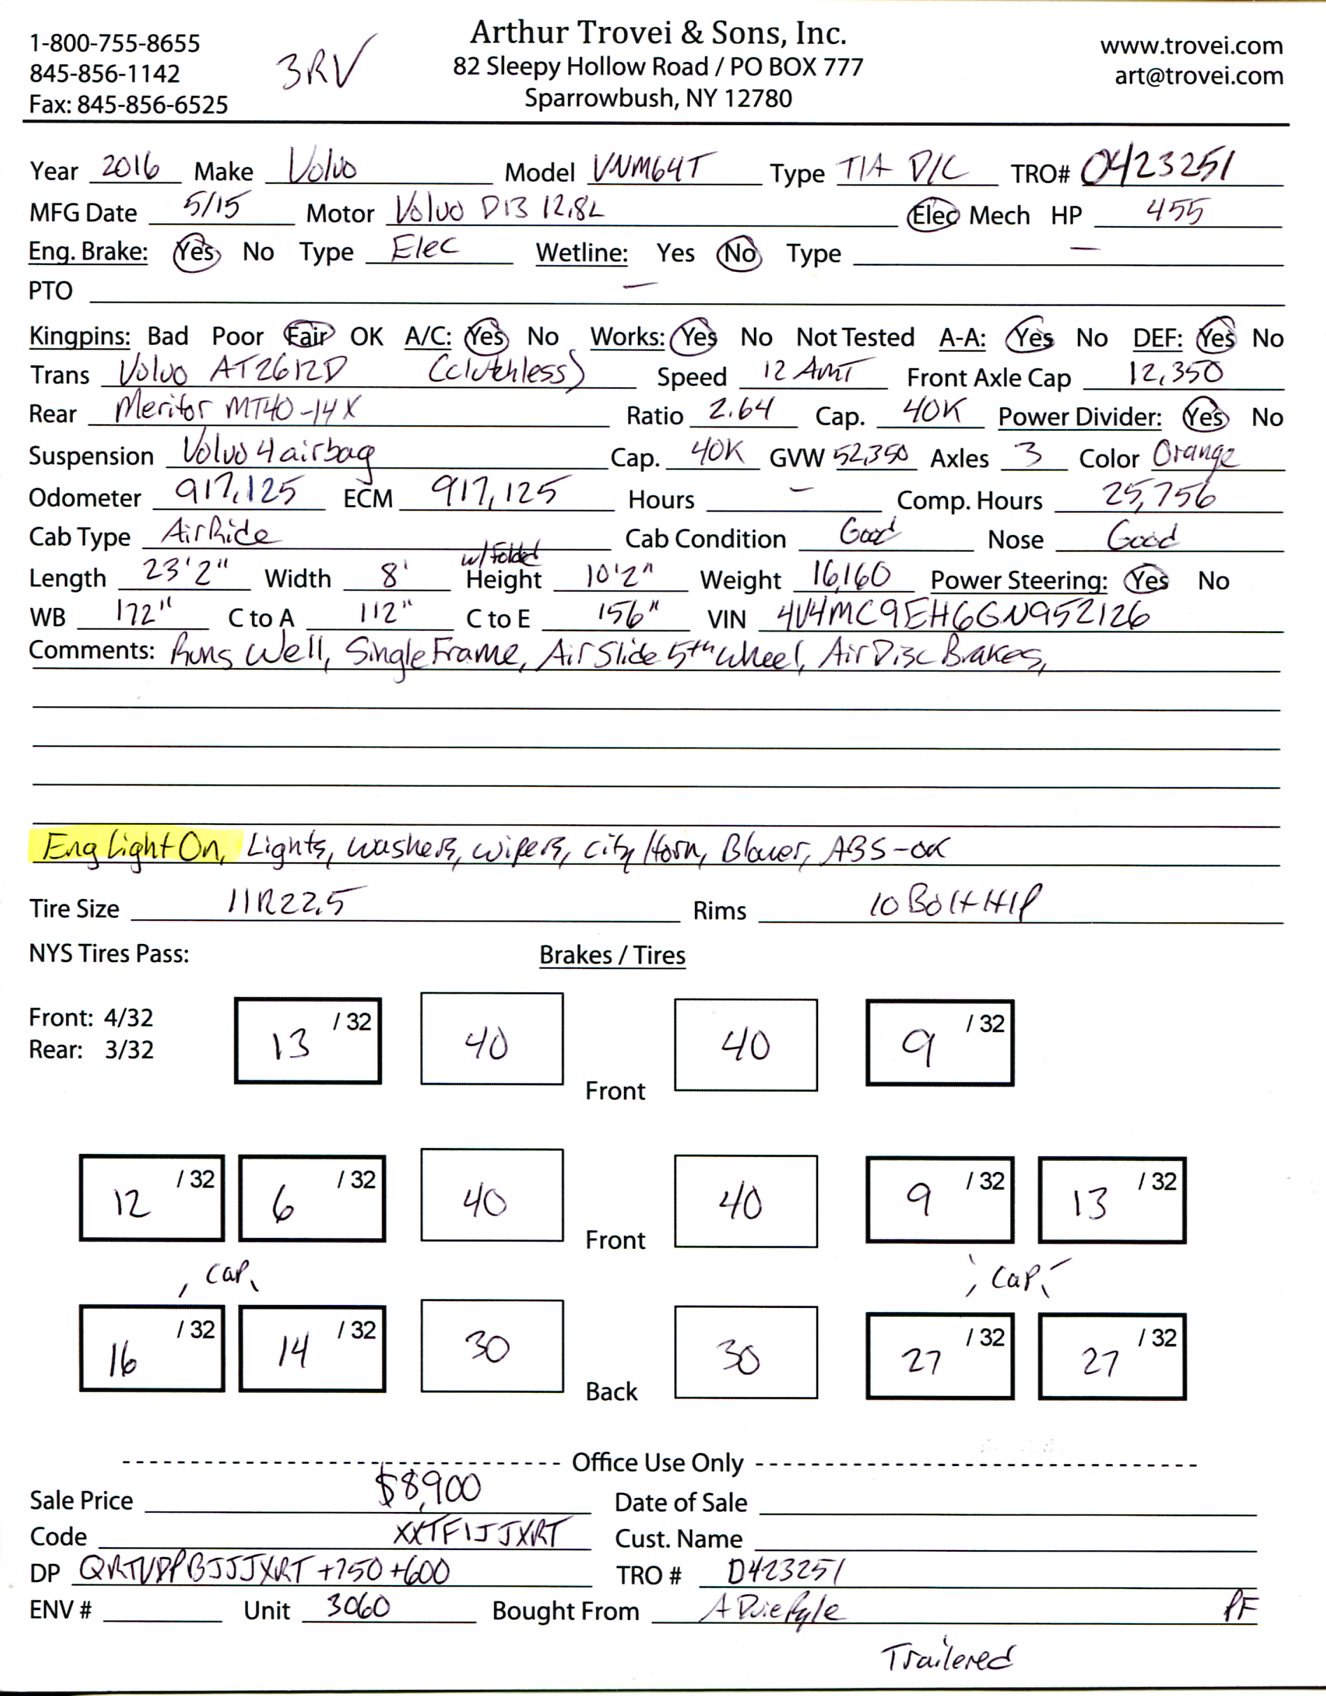 Arthur Trovei & Sons, Inc.
1-800-755-8655 www.trovei.com
845-856-1142 3RV 82 Sleepy Hollow Road / PO BOX 777 art@trovei.com
Fax: 845-856-6525 Sparrowbush, NY 12780
Year 2016 Make Volvo Model VNM64T Type T/A D/C TRO# 0423251
MFG Date 5/15 Motor Volvo D13 12.8L Elec Mech HP 455
Eng. Brake: Yes No Type Elec Wetline: Yes No Type —
PTO —
Kingpins: Bad Poor Fair OK A/C: Yes No Works: Yes No Not Tested A-A: Yes No DEF: Yes No
Trans Volvo AT2612D (clutchless) Speed 12 AMT Front Axle Cap 12,350
Rear Meritor MT40-14X Ratio 2.64 Cap. 40K Power Divider: Yes No
Suspension Volvo 4 airbag Cap. 40K GVW 52,350 Axles 3 Color Orange
Odometer 917,125 ECM 917,125 Hours — Comp. Hours 25,756
Cab Type AirRide Cab Condition Good Nose Good
Length 23'2" Width 8' w/Folded Height 10'2" Weight 16,160 Power Steering: Yes No
WB 172" C to A 112" C to E 156" VIN 4V4MC9EH6GN952126
Comments: Runs Well, Single Frame, Air Slide 5th Wheel, Air Disc Brakes,
Eng Light On, Lights, washers, wipers, city Horn, Blower, ABS-ok
Tire Size 11R22.5 Rims 10 Bolt H/P
NYS Tires Pass: Brakes / Tires
Front: 4/32
Rear: 3/32
13 /32 40 Front 40 9 /32
12 /32 6 /32 40 Front 40 9 /32 13 /32
, cap, , cap,
16 /32 14 /32 30 Back 30 27 /32 27 /32
Office Use Only
Sale Price $8,900 Date of Sale
Code XXTFIJJXRT Cust. Name
DP QRTVDPBJJJXRT +750 +600 TRO # 0423251
ENV # Unit 3060 Bought From A Duie Pyle PF
Trailered